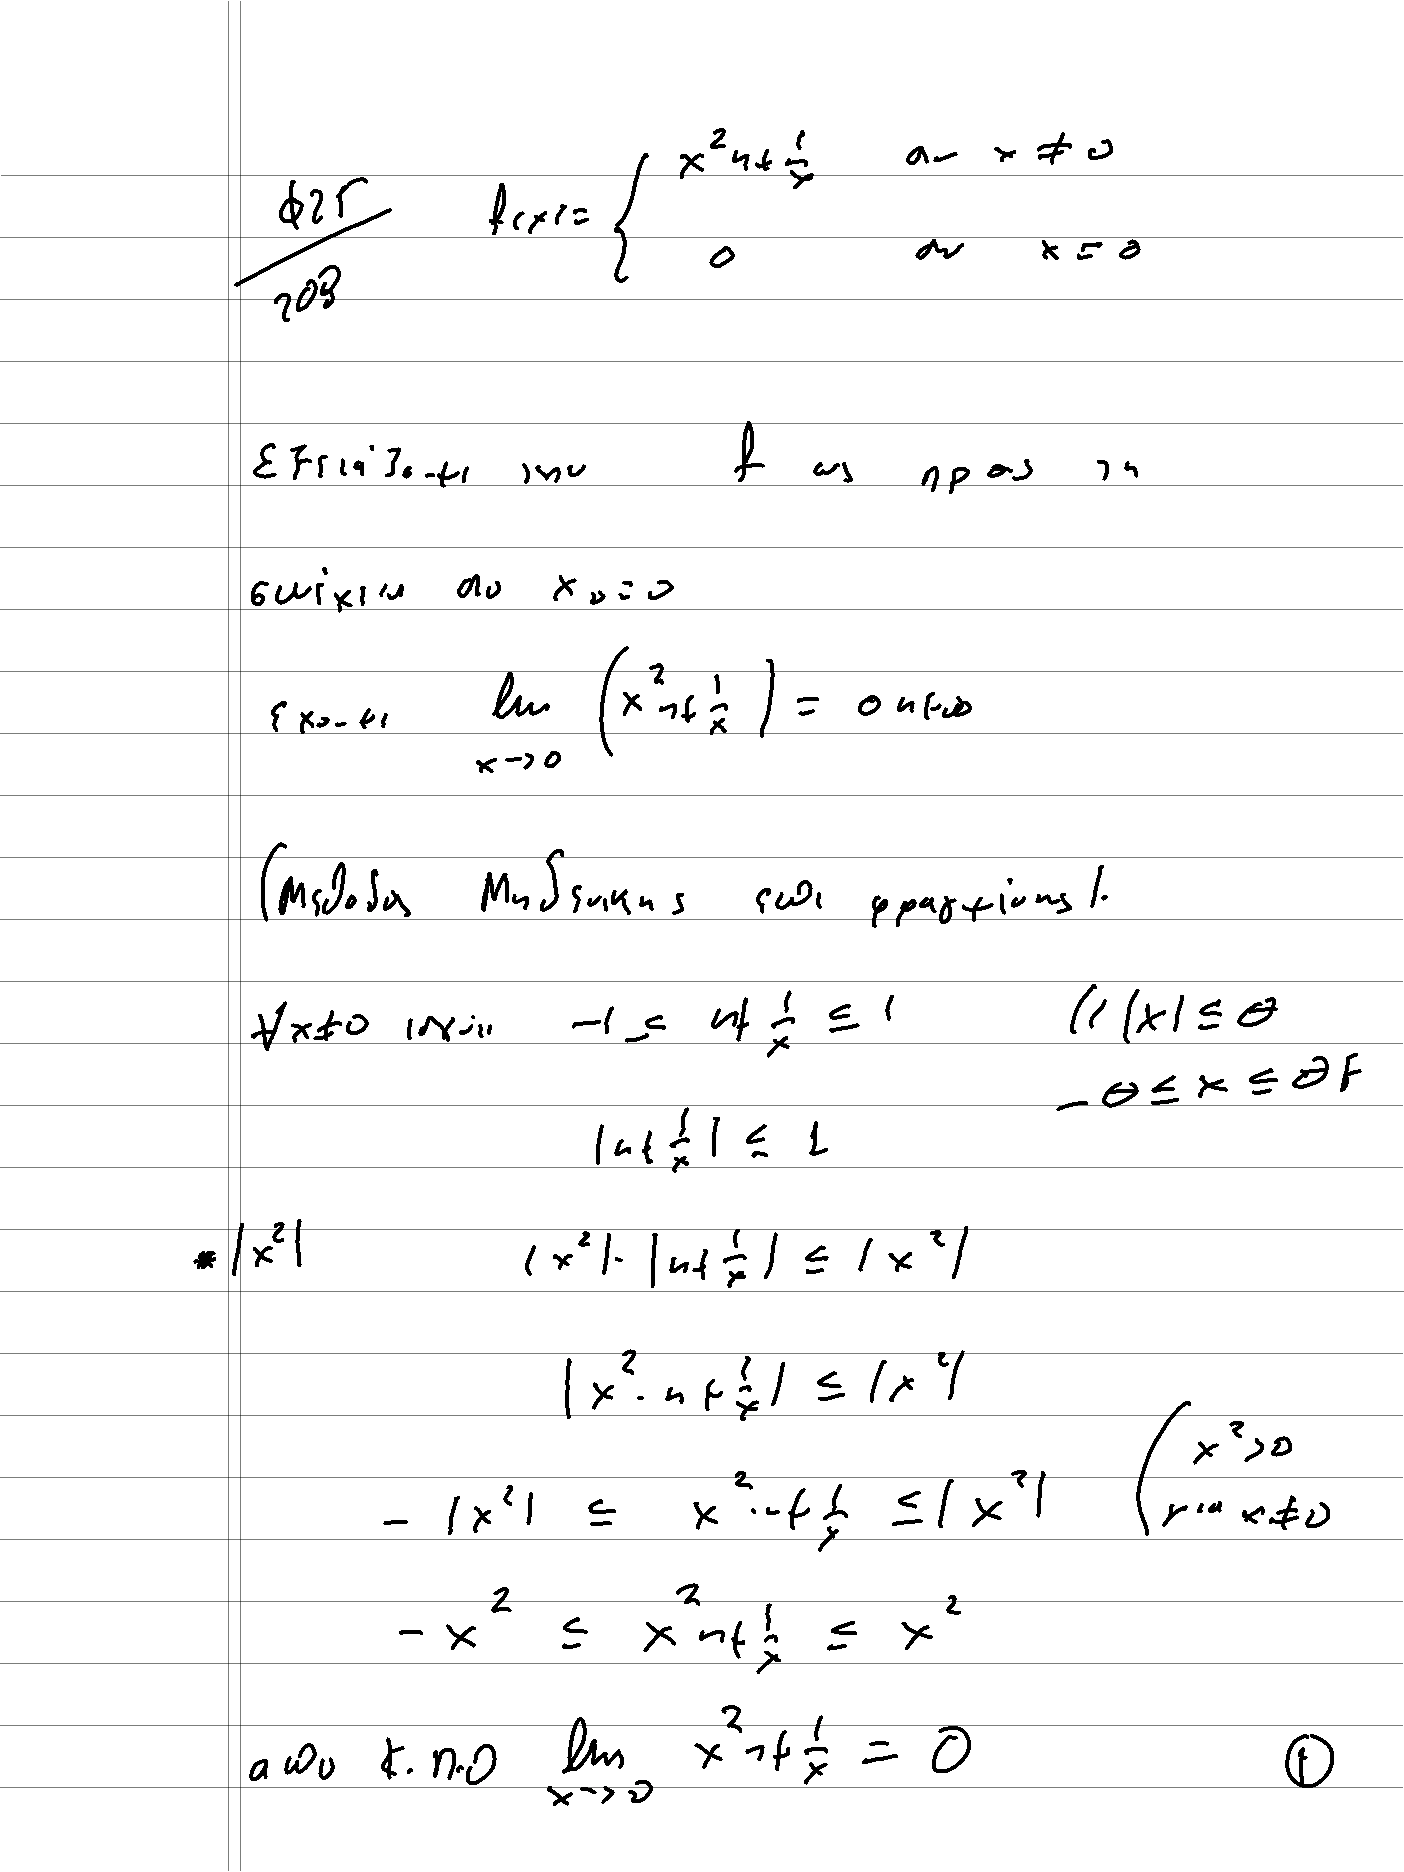 Φ25 / 203 f(x) = { x² ημ 1/x αν x ≠ 0
0 αν x = 0
Εξεταζομε την f ως προς τη
συνέχεια στο x₀ = 0
εχομε lim x→0 (x² ημ 1/x) = 0 ημ∞
(Μεθοδος Μηδενικης επι φραγμενης).
∀x≠0 ισχυει -1 ≤ ημ 1/x ≤ 1 (( |x| ≤ θ
-θ ≤ x ≤ θ
|ημ 1/x| ≤ 1
* |x²| |x²| · |ημ 1/x| ≤ |x²|
|x² · ημ 1/x| ≤ |x²|
- |x²| ≤ x² · ημ 1/x ≤ |x²| ( x² > 0
για x ≠ 0
-x² ≤ x² ημ 1/x ≤ x²
απο Κ.Π. lim x→0 x² ημ 1/x = 0 ①